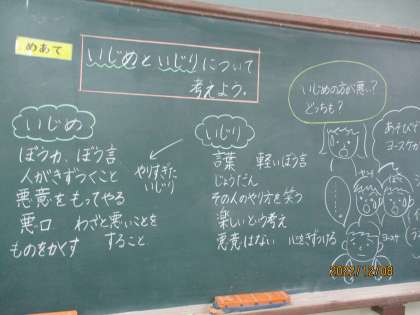 めあて
いじめといじりについて
考えよう。
いじめ
ぼう力、ぼう言
人がきずつくこと
悪意をもってやる
悪口 わざと悪いことを
すること
ものをかくす
やりすぎた
いじり
いじり
言葉 軽いぼう言
じょうだん
その人のやり方を笑う
楽しいという考え
悪意はない 心はきずつける
いじめの方が悪い？
どっちも？
あそびで
ヨースケ
ヨースケ
2022/12/08